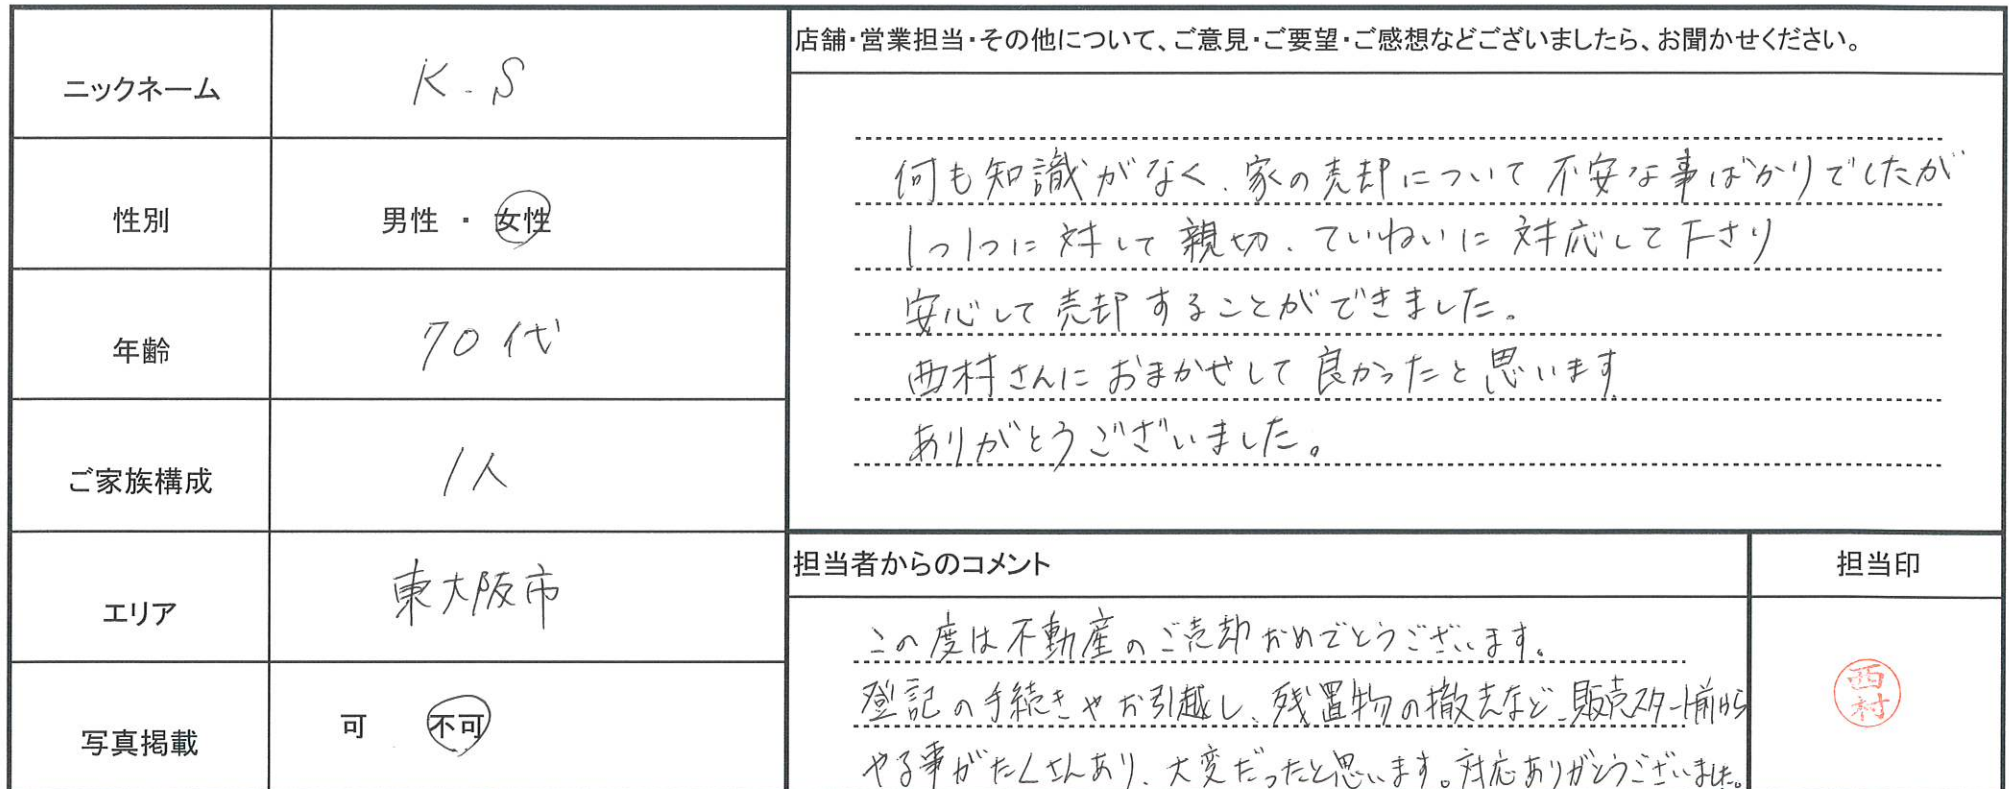 ニックネーム
K.S
性別
男性 ・ 女性
年齢
70代
ご家族構成
1人
エリア
東大阪市
写真掲載
可 不可
店舗・営業担当・その他について、ご意見・ご要望・ご感想などございましたら、お聞かせください。
何も知識がなく、家の売却について不安な事ばかりでしたが
1つ1つに対して親切、ていねいに対応して下さり
安心して売却することができました。
西村さんにおまかせして良かったと思います
ありがとうございました。
担当者からのコメント
この度は不動産のご売却おめでとうございます。
登記の手続きやお引越し、残置物の撤去など、販売スタート前から
やる事がたくさんあり、大変だったと思います。対応ありがとうございました。
担当印
西村